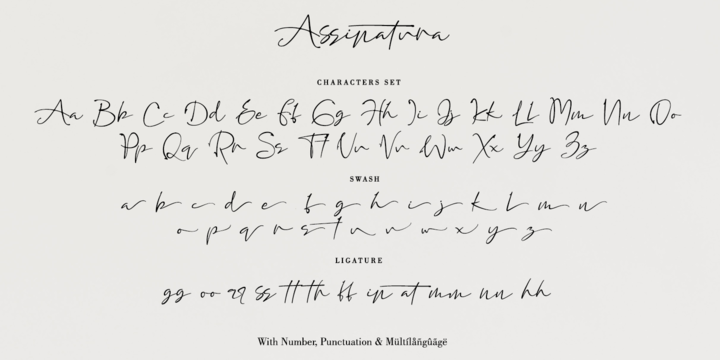 Assinatura
CHARACTERS SET
Aa Bb Cc Dd Ee Ff Gg Hh Ii Jj Kk Ll Mm Nn Oo
Pp Qq Rr Ss Tt Uu Vv Ww Xx Yy Zz
SWASH
a b c d e f g h i j k l m n
o p q r s t u v w x y z
LIGATURE
gg oo rr ss tt th ff in at mm nn hh
With Number, Punctuation & Mültílåñgûágë